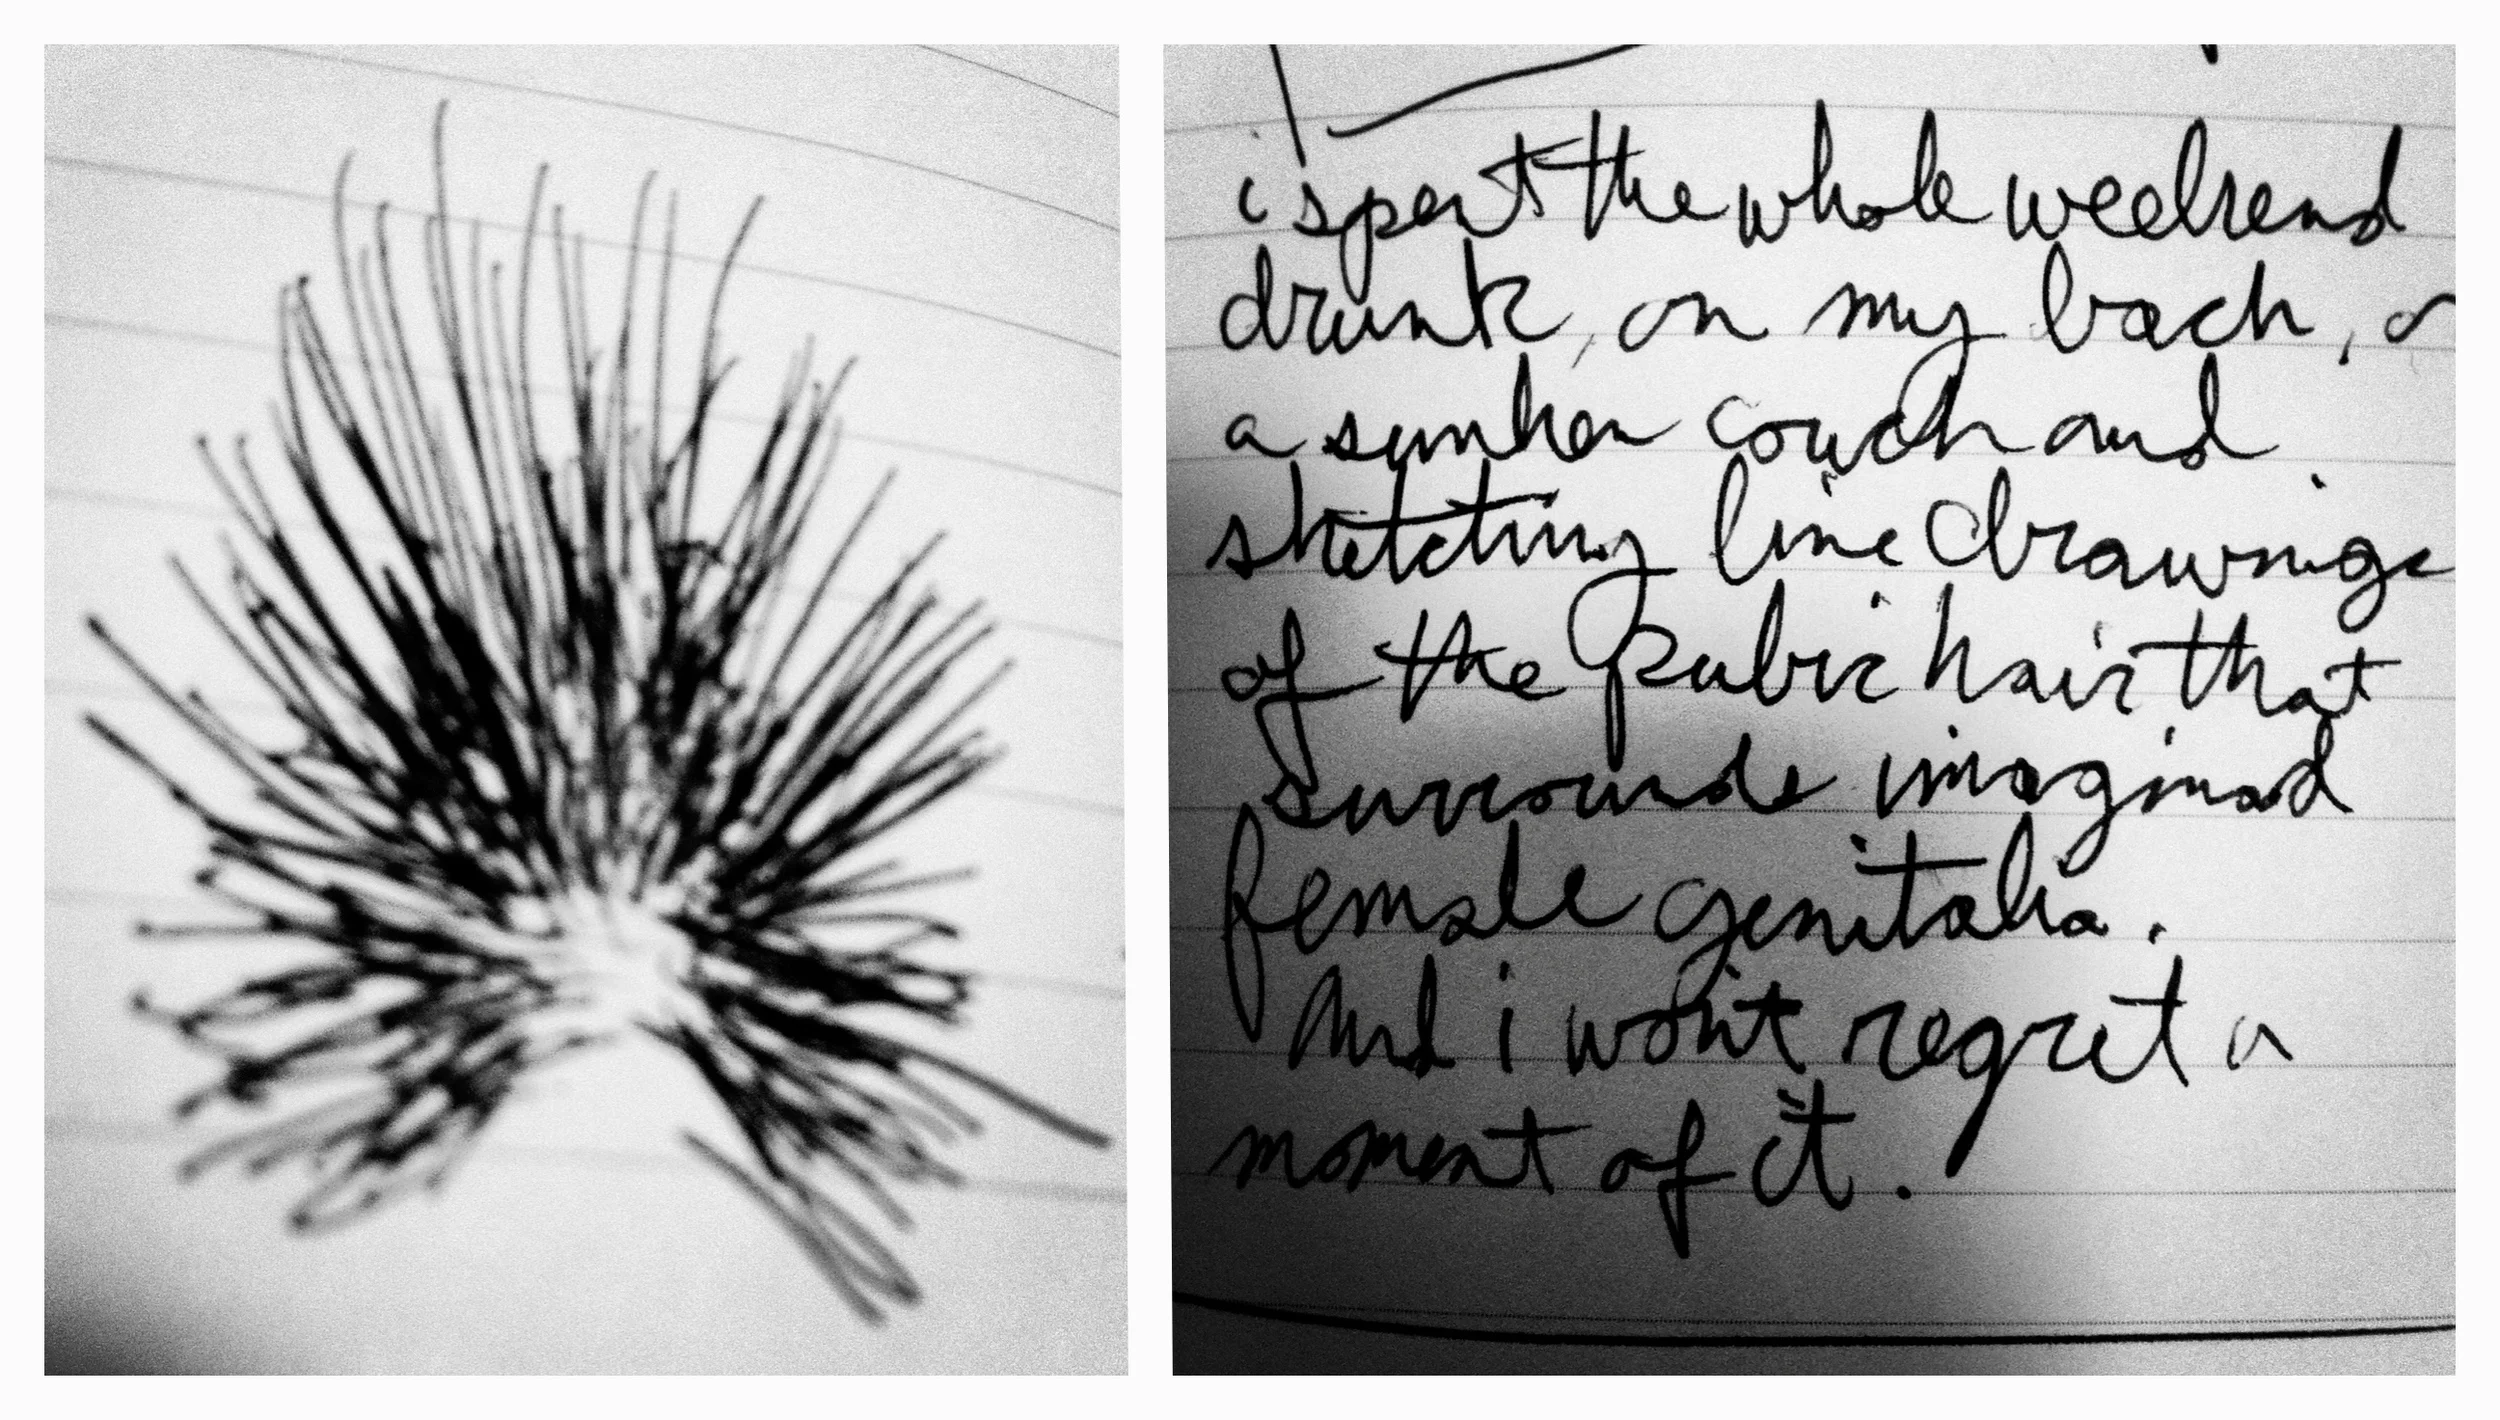 i spent the whole weekend
drunk, on my back, o
a sunken couch and
sketching line drawings
of the pubic hair that
surrounds imagined
female genitalia.
And i won't regret a
moment of it.